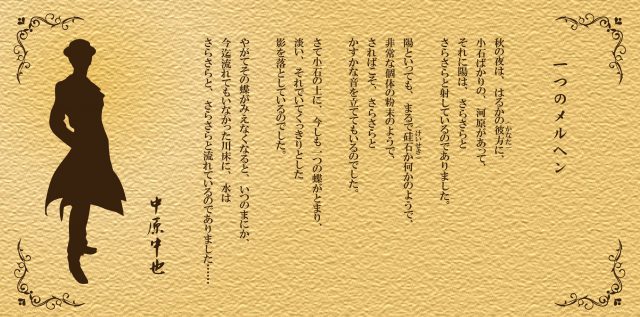 一つのメルヘン
秋の夜は、はるかの彼方に、
かなた
小石ばかりの、河原があって、
それに陽は、さらさらと
さらさらと射しているのでありました。
陽といっても、まるで硅石か何かのようで、
けいせき
非常な個体の粉末のようで、
さればこそ、さらさらと
かすかな音を立ててもいるのでした。
さて小石の上に、今しも一つの蝶がとまり、
淡い、それでいてくっきりとした
影を落としているのでした。
やがてその蝶がみえなくなると、いつのまにか、
今迄流れてもいなかった川床に、水は
さらさらと、さらさらと流れているのでありました……
中原中也